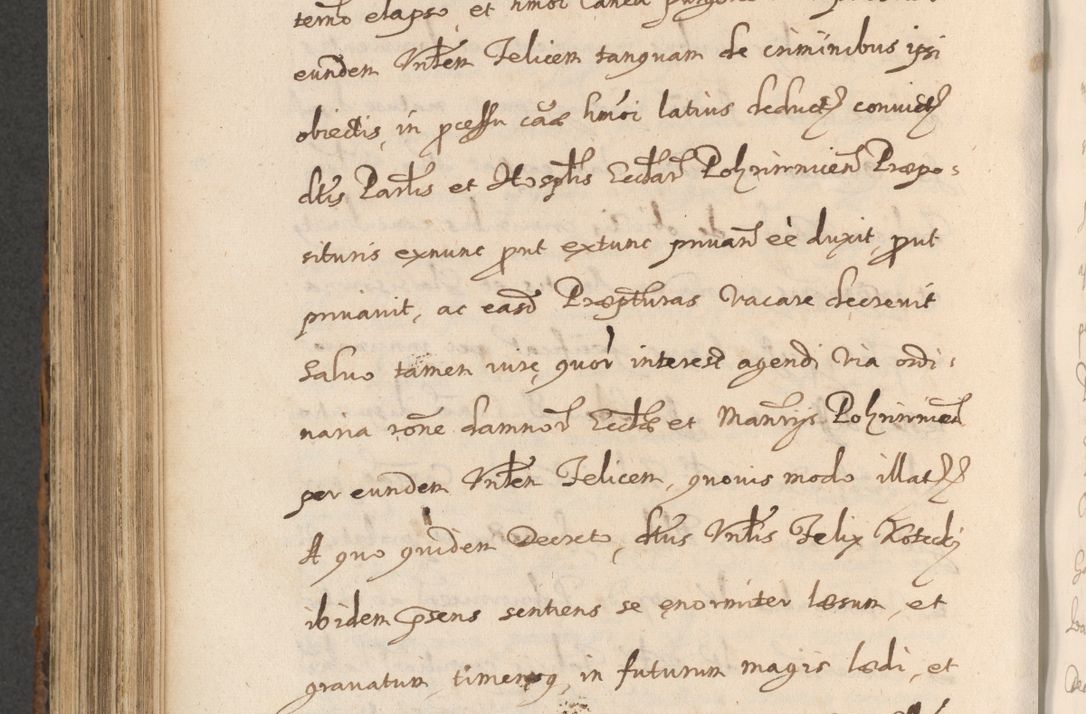 temõ elapso, et hmõi
eundem Vnblem Felicem tanquam de criminibus ipsi
obiectis, in pcessu cãæ hmõi latius deductis convictum
dtis Parlis et Hosptlis Eccliar Pohrinnicen Præpo-
situris exnunc put extunc privand eẽ duxit, put
privavit, ac easd Præpturas vacare decrevit
Salvo tamen iure, quor interest agendi via ordi-
naria rõne damnor Ecclæ et Manrijs Pohrinnicen
per eundem Vnblem Felicem, quovis modo illat
A quo quidem Decreto, dtus Vnblis Felix Kotecki
ibidem psens sentiens se enormiter læsum, et
gravatum, timensq, in futurum magis lædi, et